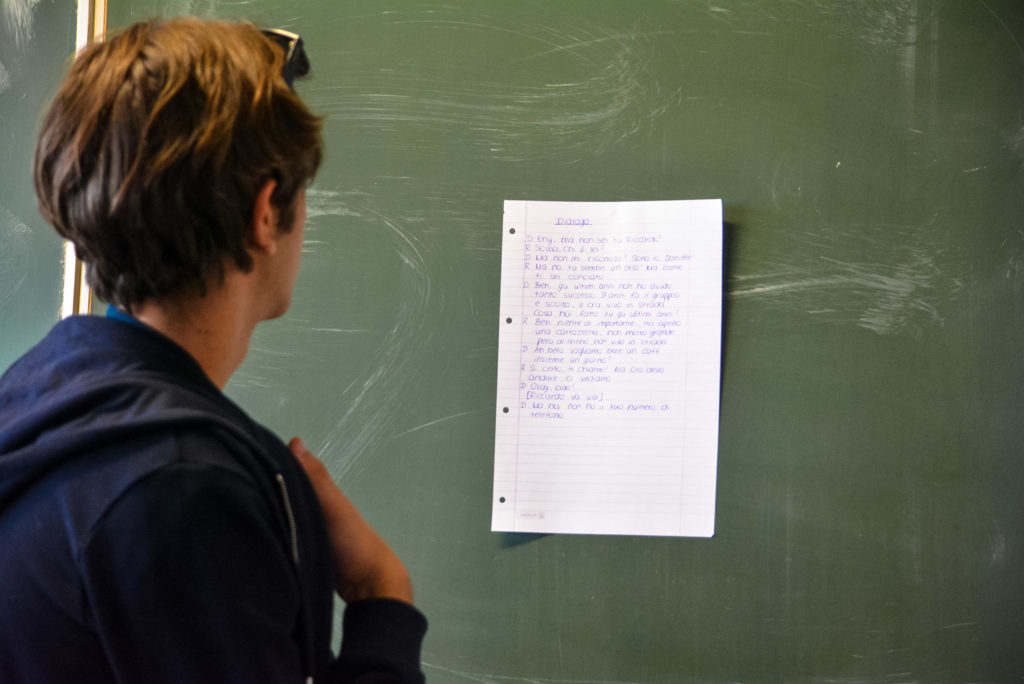 Dialogo
D Ehy, ma non sei tu Riccardo?
R Scusa, chi è lei?
D Ma non mi riconosci? Sono io
R Ma no, tu sembri un orso! Ma come
ti sei conciato
D Beh, gli ultimi anni non ho avuto
tanto successo 9 anni fa il gruppo
è sciolto, e ora vivo in strada
Cosa hai fatto tu gli ultimi anni?
R. Beh niente di importante, ho aperto
una carrozzeria, non molto grande,
però almeno non vivo in strada
D Ah bello vogliamo bere un caffè
insieme un giorno?
R Sì certo, ti chiamo! Ma ora devo
andare, ci vediamo
D Okay, ciao!
[Riccardo va via]
D Ma hai non ho il tuo numero di
telefono